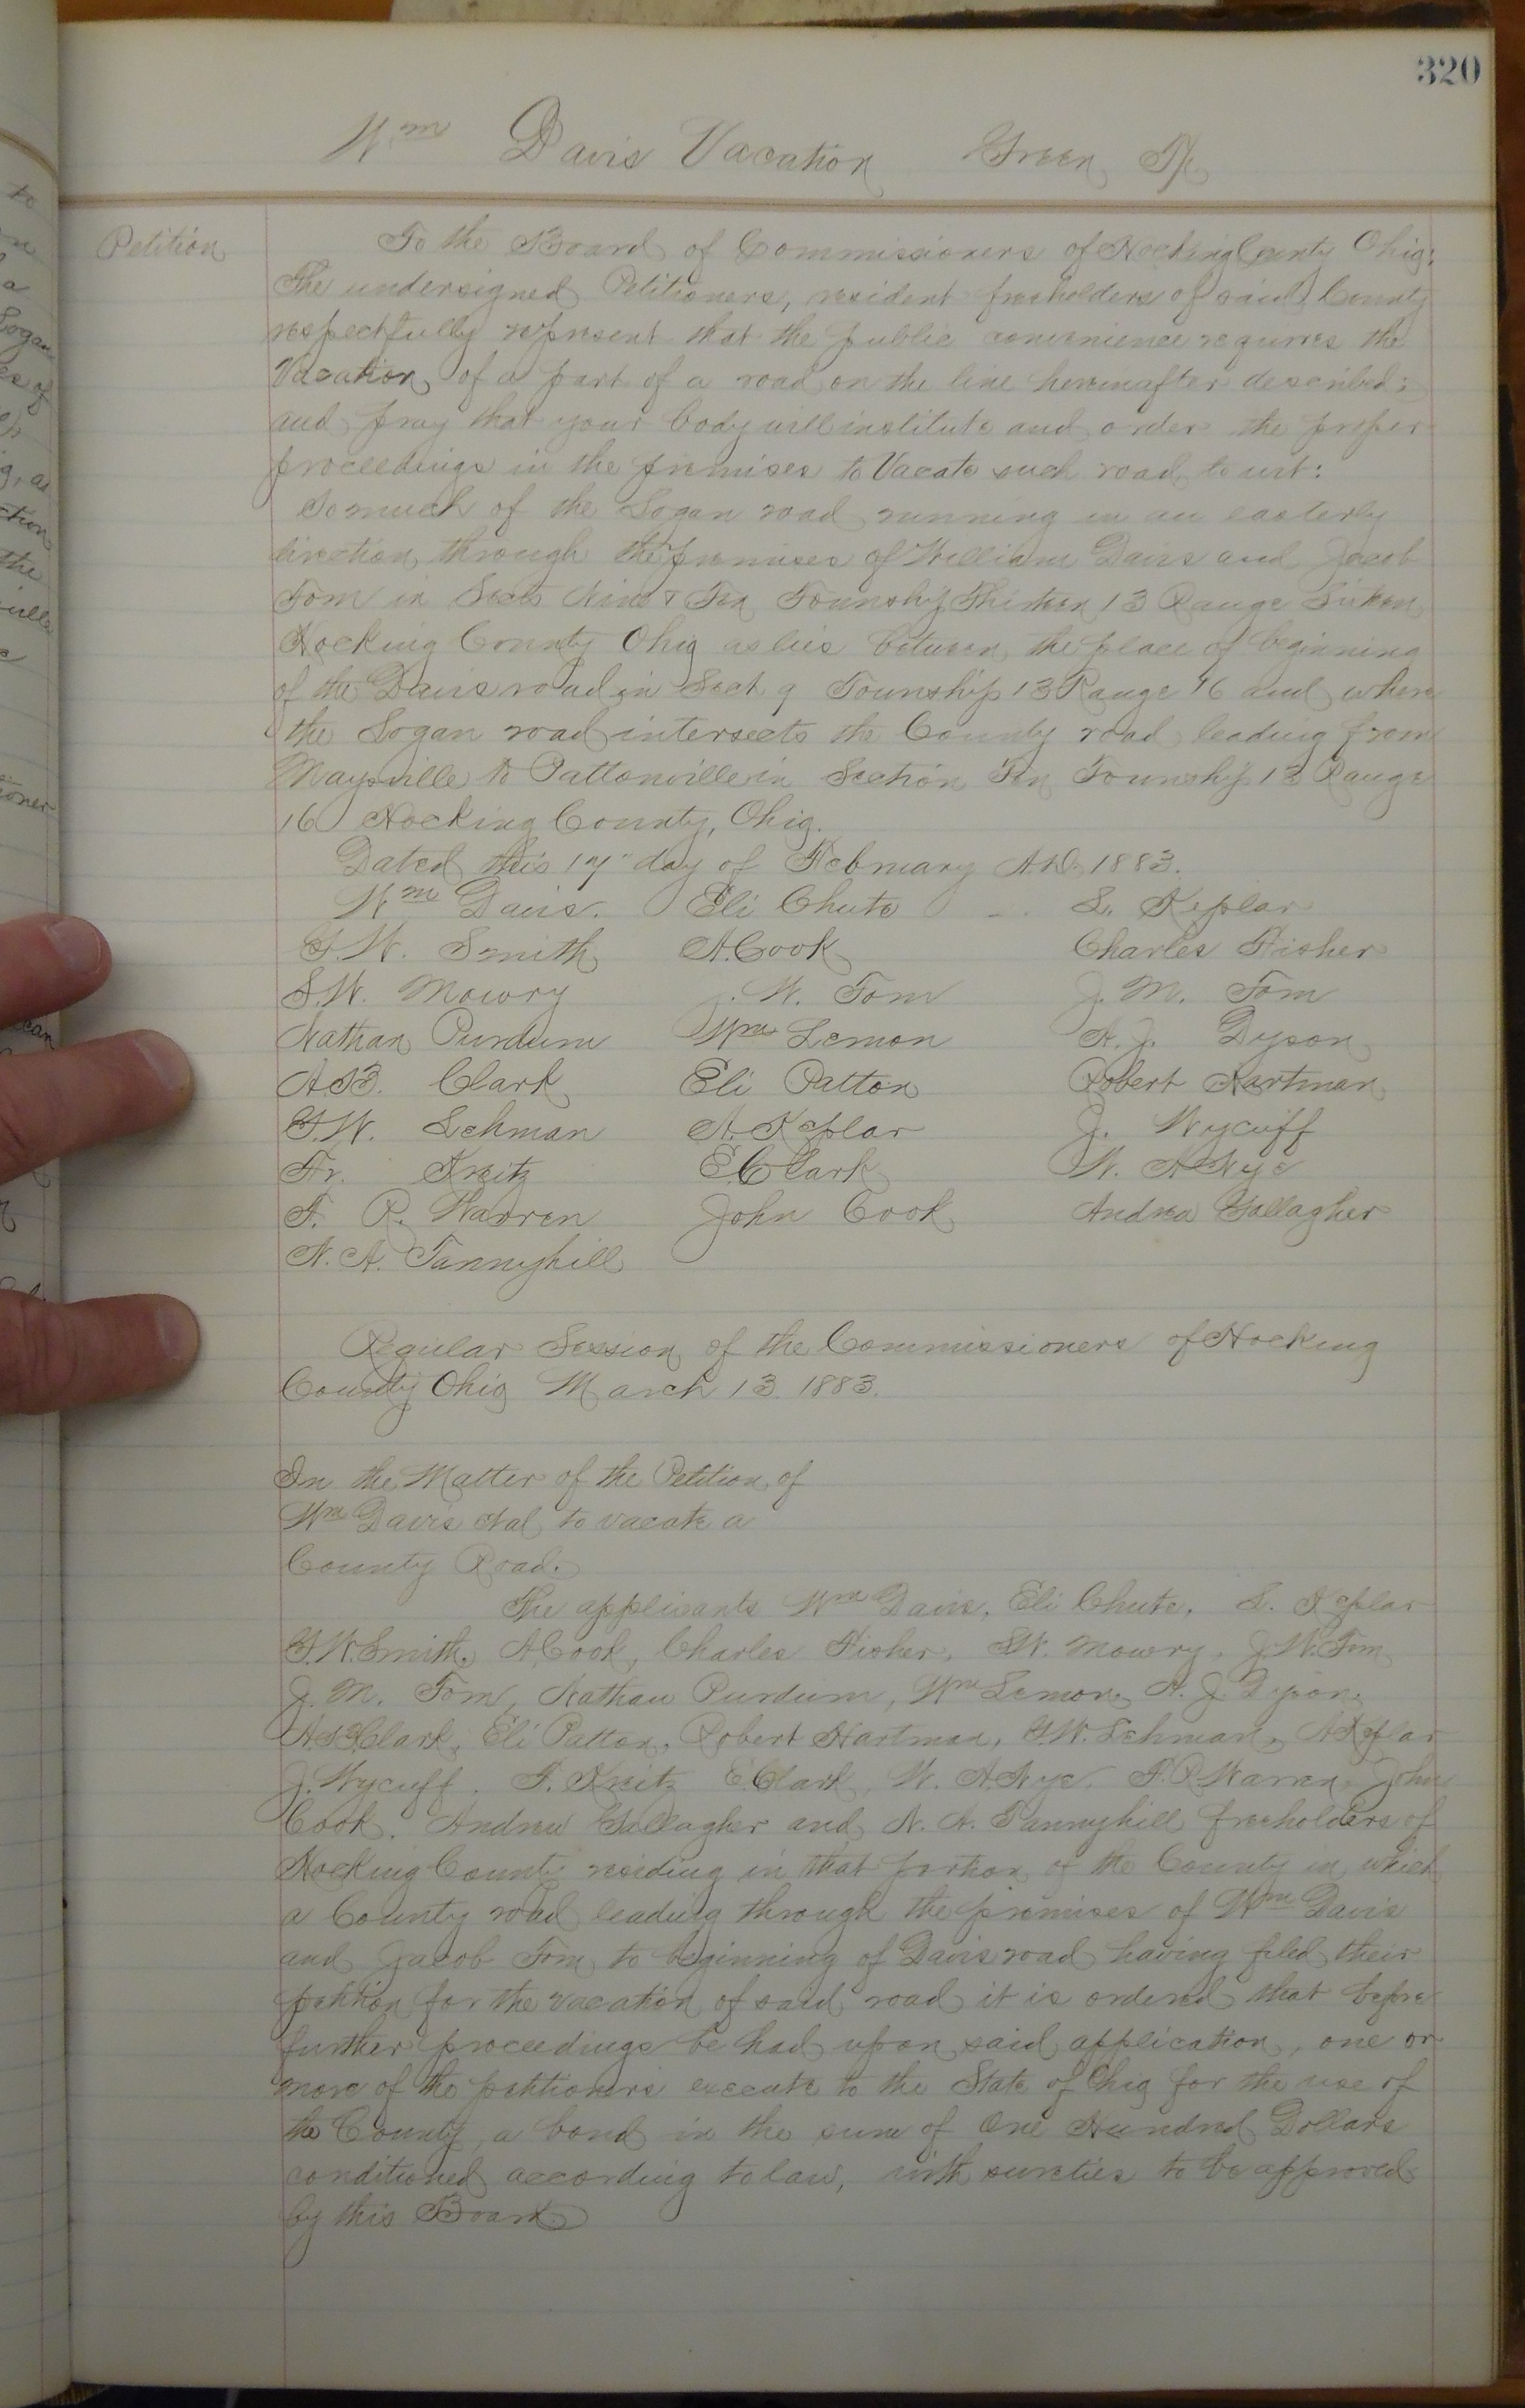 320
Wm Davis Vacation Green Tp.
Petition
To the Board of Commissioners of Hocking County Ohio:
The undersigned Petitioners, resident freeholders of said County
respectfully represent that the public convenience requires the
Vacation of a part of a road on the line hereinafter described:
and pray that your body will institute and order the proper
proceedings in the premises to Vacate such road to wit:
So much of the Logan road running in an easterly
direction through the premises of William Davis and Jacob
Tom in Sects Nine & Ten Township Thirteen 13 Range Sixteen
Hocking County Ohio as lies between the place of beginning
of the Davis road in Sect 9 Township 13 Range 16 and where
the Logan road intersects the County road leading from
Maysville to Pattonville in Section Ten Township 13 Range
16 Hocking County, Ohio.
Dated this 17" day of February A.D. 1883.
Wm Davis. Eli Chute L. Keplar
G.W. Smith A. Cook Charles Fisher
S.W. Mowry J. W. Tom J. M. Tom
Nathan Purdum Wm Lemon A. J. Dyson
A.B. Clark Eli Patton Robert Hartman
G.W. Lehman A. Keplar J. Wycuff
Fr. Kreitz E Clark W. A Nye
F. R. Warren John Cook Andrew Gallagher
N. A. Tannyhill
Regular Session of the Commissioners of Hocking
County Ohio March 13. 1883.
In the Matter of the Petition of
Wm Davis et al to vacate a
County Road.
The applicants Wm Davis, Eli Chute, L. Keplar
G.W. Smith, A. Cook, Charles Fisher, S.W. Mowry, J.W. Tom
J. M. Tom, Nathan Purdum, Wm Lemon, A. J. Dyson,
A.B. Clark, Eli Patton, Robert Hartman, G.W. Lehman, A Keplar
J. Wycuff. F. Kreitz E. Clark, W. A Nye. F. R. Warren, John
Cook. Andrew Gallagher and N. A. Tannyhill freeholders of
Hocking County residing in that portion of the County in which
a County road leading through the premises of Wm Davis
and Jacob Tom to beginning of Davis road having filed their
petition for the vacation of said road it is ordered that before
further proceedings be had upon said application, one or
more of the petitioners execute to the State of Ohio for the use of
the County, a bond in the sum of One Hundred Dollars
conditioned according to law, with sureties to be approved
by this Board